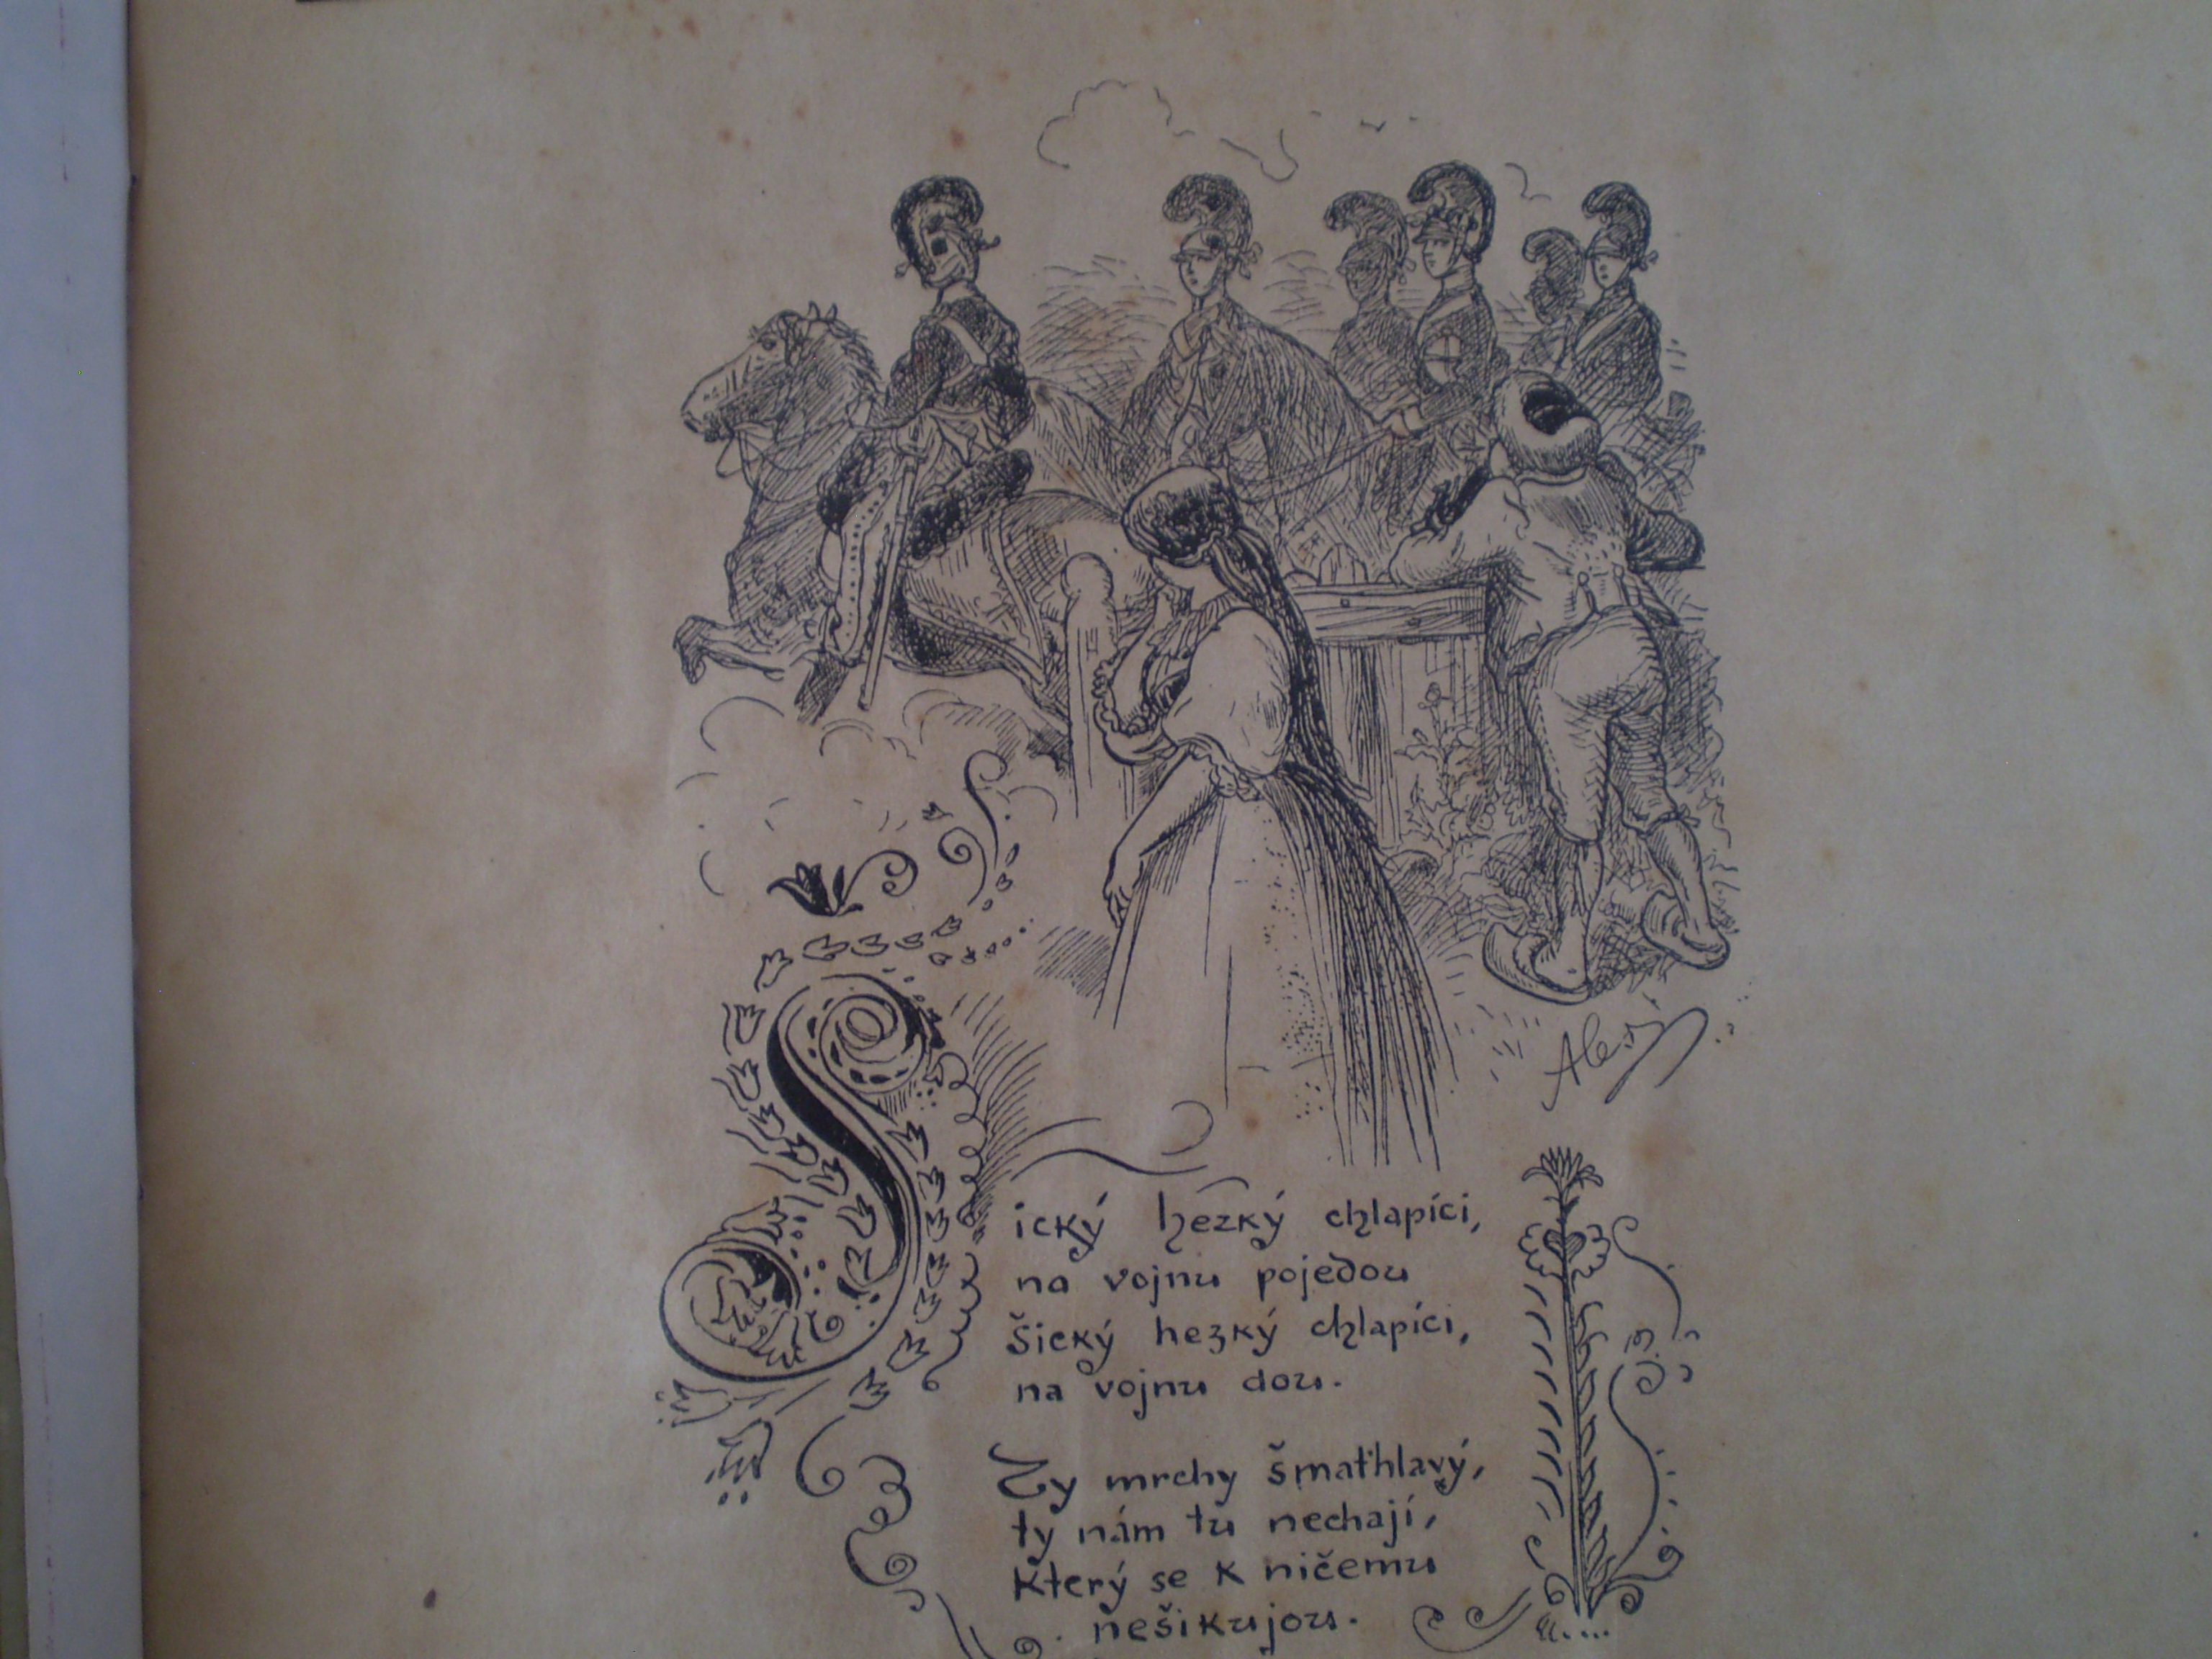 Aleš
Šický hezký chlapíci,
na vojnu pojedou
šický hezký chlapíci,
na vojnu dou.
Ty mrchy šmaťhlavý,
ty nám tu nechají,
který se k ničemu
nešikujou.